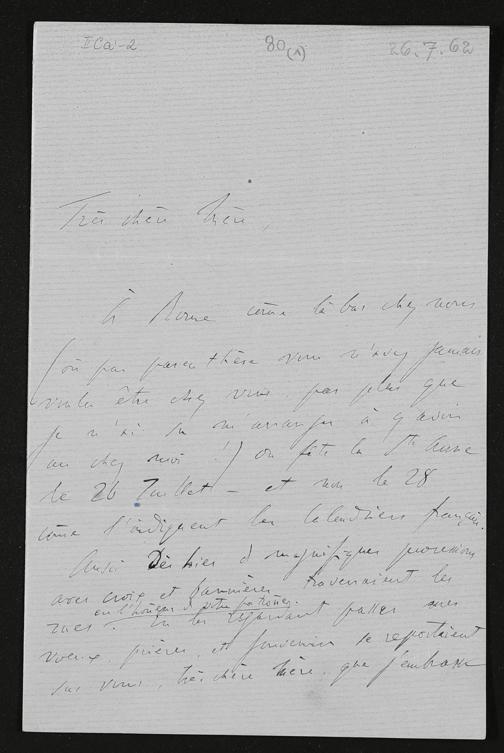 II Ca-2 80 (A) 26.7.62
Très chère Mère,
À Rome côme là bas chez nous
(où par parenthèse vous n'avez jamais
voulu être chez vous, pas plus que
je n'ai su m'arranger à y avoir
un chez moi !) on fête la Ste Anne
le 26 Juillet – et non le 28
côme l'indiquent les calendriers français.
Aussi Dès hier de magnifiques processions
avec croix et bannières traversaient les
en l'honneur de votre patronne.
rues. En les regardant passer mes
voeux, prières, et souvenirs se reportaient
sur vous, très chère Mère, que j'embrasse